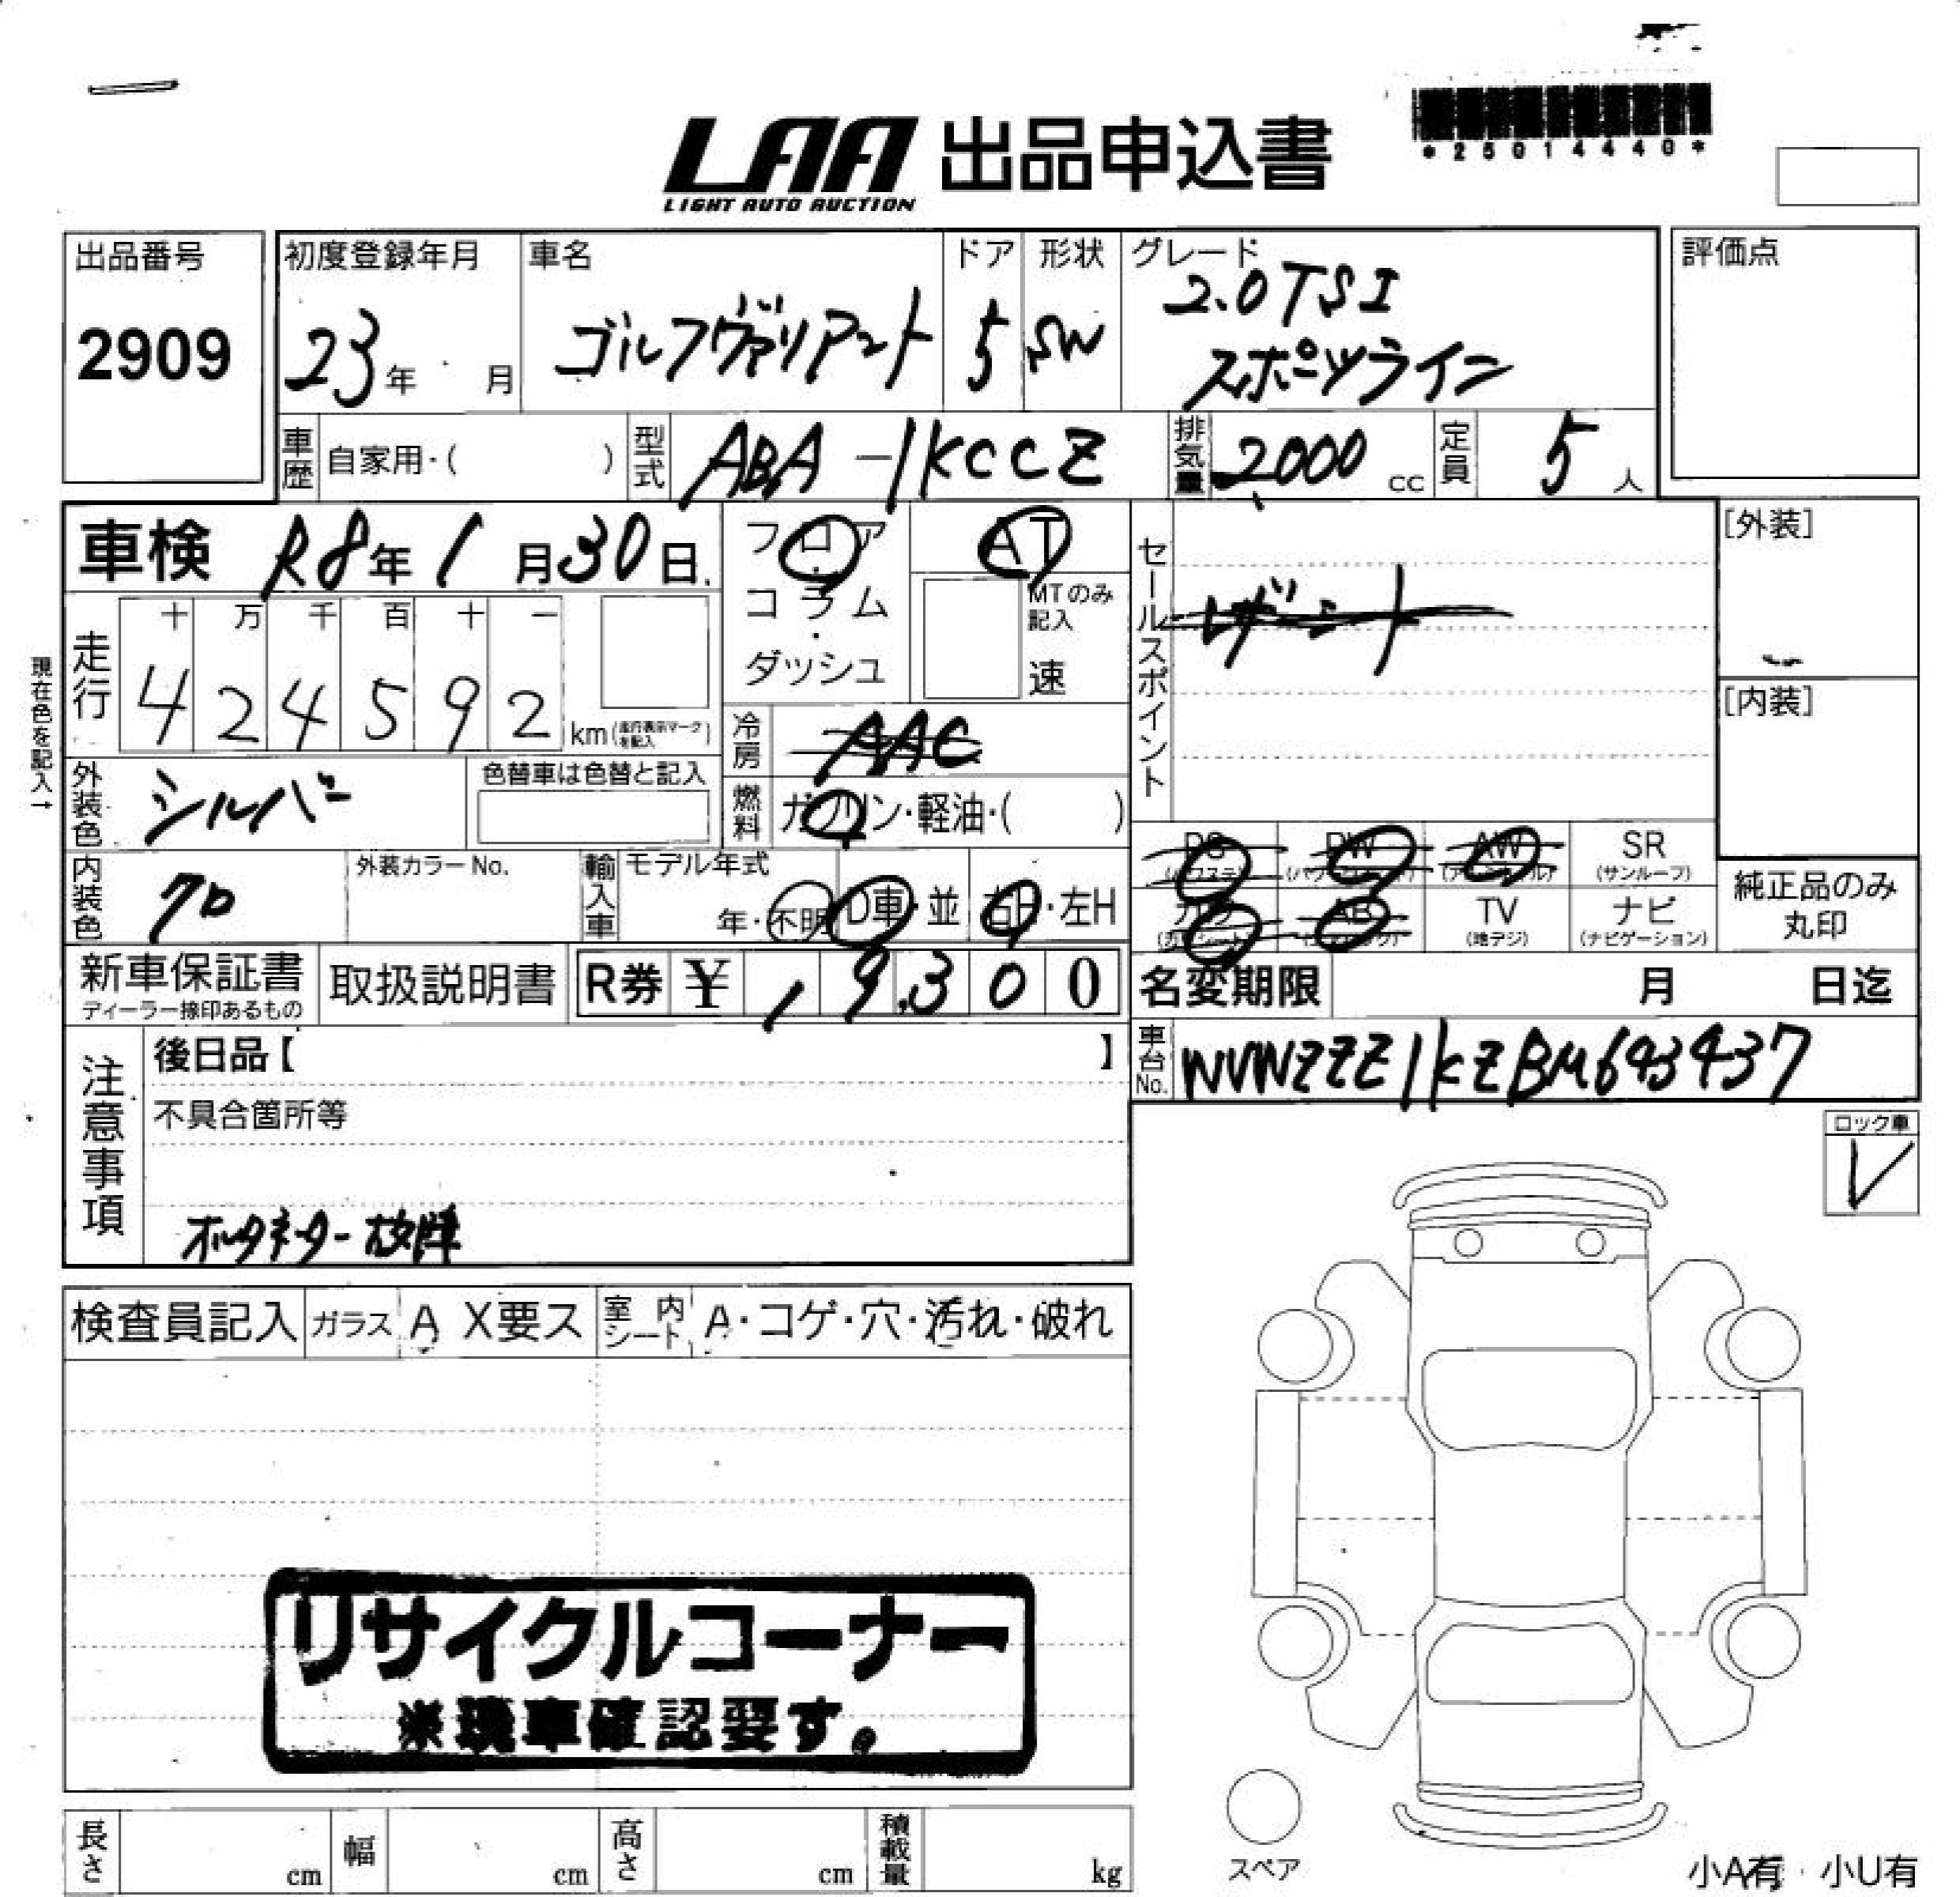 LAA 出品申込書
LIGHT AUTO AUCTION
*25014440*
出品番号
2909
初度登録年月
23年 月
車名
ゴルフヴァリアント
ドア
5
形状
SW
グレード
2.0TSI
スポーツライン
評価点
車歴
自家用・( )
型式
ABA-1KCCZ
排気量
2,000 cc
定員
5人
車検 R8年1月30日
フロア
・
コラム
・
ダッシュ
AT
MTのみ
記入
速
セールスポイント
レザーシート
[外装]
[内装]
現在色を記入→
走行
十 万 千 百 十 一
4 2 4 5 9 2 km(走行表示マークを記入)
冷房
AAC
外装色
シルバー
色替車は色替と記入
燃料
ガソリン・軽油・( )
内装色
クロ
外装カラーNo.
輸入車
モデル年式
年・不明
D車・並
右H・左H
PS PW AW SR
(パワステ) (サンルーフ)
AB TV ナビ
(地デジ) (ナビゲーション)
純正品のみ
丸印
新車保証書
ディーラー捺印あるもの
取扱説明書
R券 ¥ , 9,300
名変期限 月 日迄
注意事項
後日品【 】
車台No.
WVWZZZ1KZBM643437
不具合箇所等
オルタネーター故障
ロック車
レ
検査員記入
ガラス
A X要ス
室内シート
A・コゲ・穴・汚れ・破れ
リサイクルコーナー
※現車確認要す。
長さ cm
幅 cm
高さ cm
積載量 kg
スペア
小A有・小U有